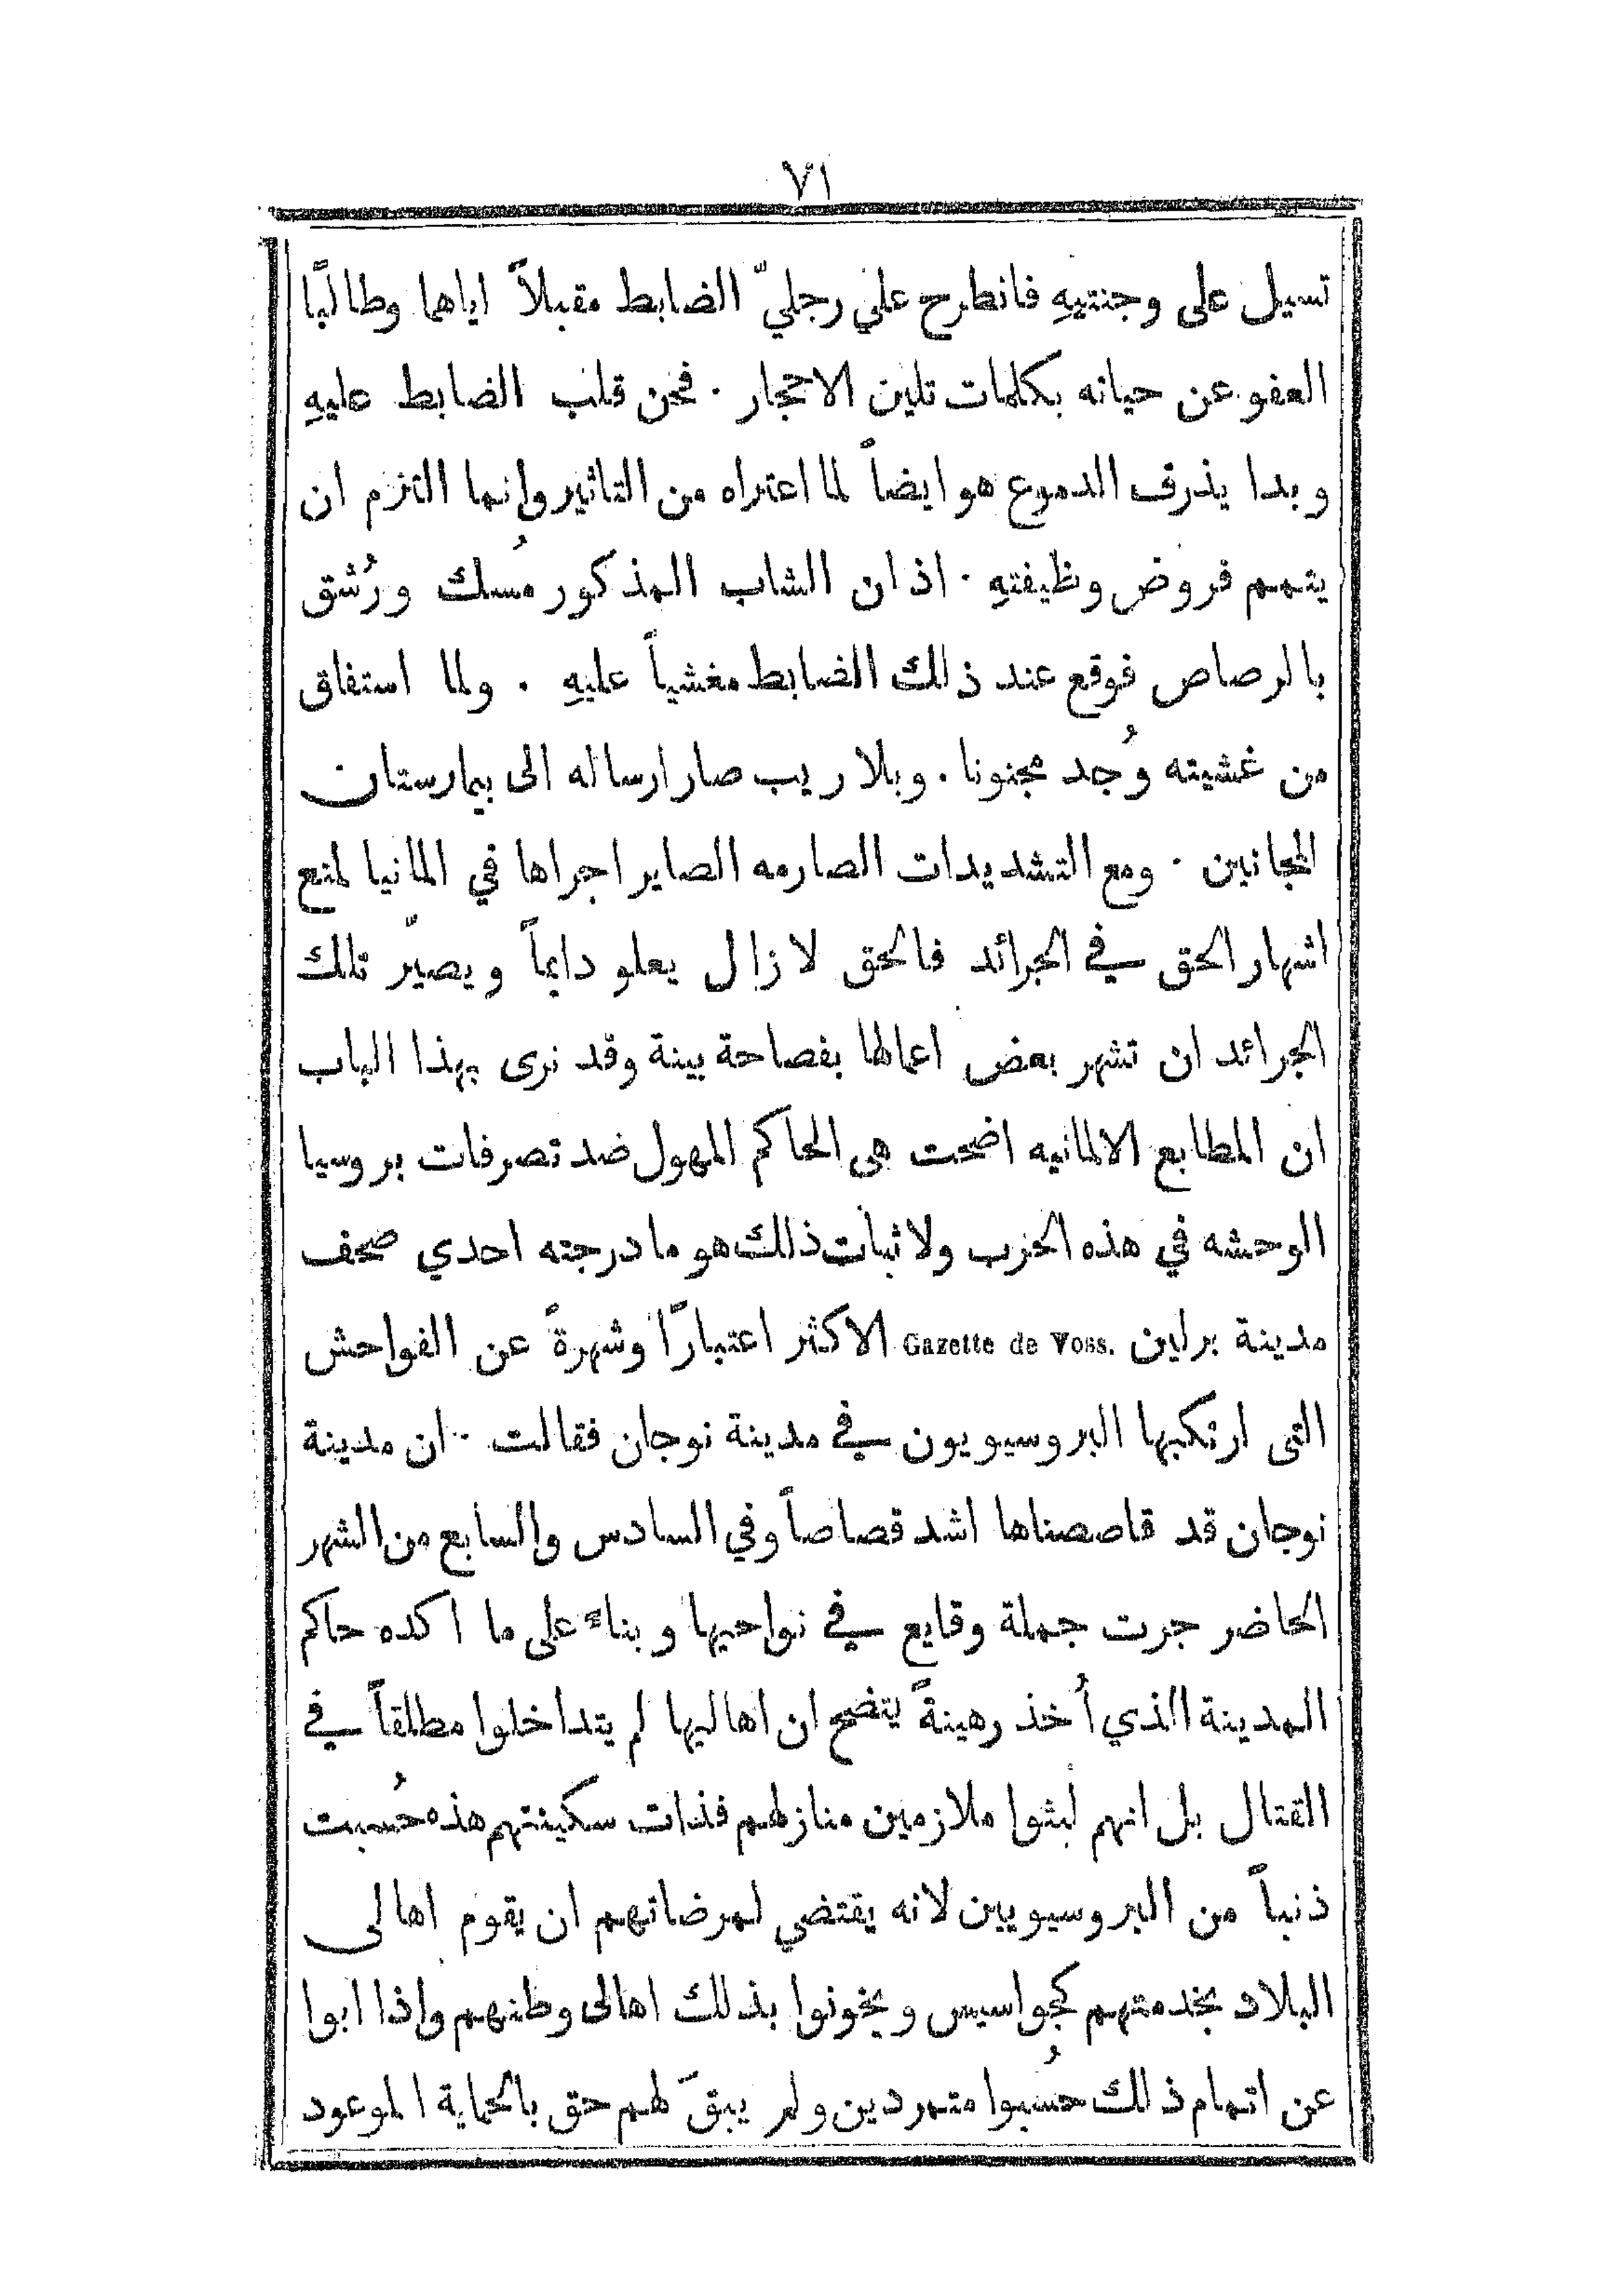 ٧١
تسيل على وجنتيهِ فانطرح علي رجليّ الضابط مقبلاً اياها وطالبًا
العفو عن حياته بكلمات تلين الاحجار . فحن قلب الضابط عليهِ
وبدا يذرف الدموع هو ايضاً لما اعتراه من التاثير وانما التزم ان
يتمم فروض وظيفتهِ . اذ ان الشاب المذكور مُسك ورُشق
بالرصاص فوقع عند ذلك الضابط مغشياً عليهِ . ولما استفاق
من غشيته وُجد مجنونا . وبلا ريب صار ارساله الى بيمارستان
المجانين . ومع التشديدات الصارمه الصاير اجراها في المانيا لمنع
اشهار الحق في الجرائد فالحق لا زال يعلو دايماً ويصيّر تلك
الجرائد ان تشهر بعض اعمالها بفصاحة بينة وقد نرى بهذا الباب
ان المطابع الالمانيه اضحت هى الحاكم المهول ضد تصرفات بروسيا
الوحشه في هذه الحرب ولاثبات ذلك هو ما درجته احدي صحف
مدينة برلين Gazette de Voss. الاكثر اعتبارًا وشهرةً عن الفواحش
التى ارتكبها البروسيويون في مدينة نوجان فقالت . ان مدينة
نوجان قد قاصصناها اشد قصاصاً وفي السادس والسابع من الشهر
الحاضر جرت جملة وقايع في نواحيها وبناءً على ما اكده حاكم
المدينة الذي أُخذ رهينةً يتضح ان اهاليها لم يتداخلوا مطلقاً في
القتال بل انهم لبثوا ملازمين منازلهم فذات سكينتهم هذه حُسبت
ذنباً من البروسيويين لانه يقتضي لمرضاتهم ان يقوم اهالى
البلاد بخدمتهم كجواسيس ويخونوا بذلك اهالى وطنهم واذا ابوا
عن اتمام ذلك حُسبوا متمردين ولم يبقَ لهم حق بالحماية الموعود